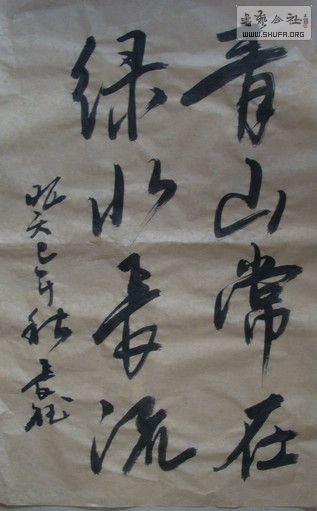 青山常在
绿水长流
书艺公社
WWW.SHUFA.ORG